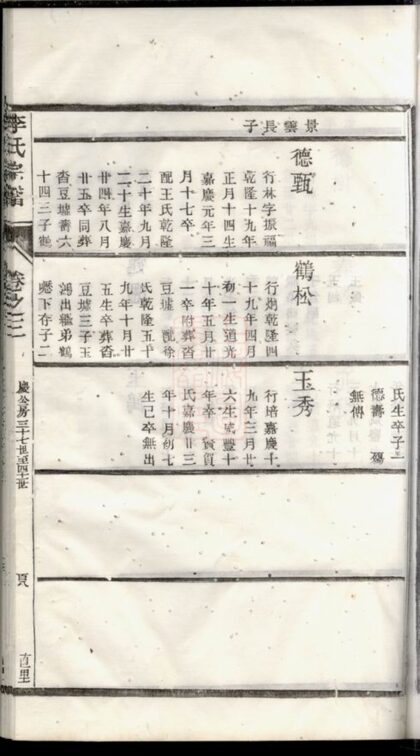 氏生卒子三
德壽 殤
無傳
景雲長子
德甄
行林字振福
乾隆十九年
正月十四生
嘉慶元年三
月十七卒
配王氏乾隆
二十年九月
二十生嘉慶
廿四年八月
廿五卒同葬
畓豆墟壽六
十四三子
鶴松
行炯乾隆四
十九年四月
初一生道光
十年五月廿
一卒附葬畓
豆墟 配徐
氏乾隆五十
九年十月廿
五生卒葬畓
豆墟三子玉
出繼弟鶴
下存子二
玉秀
行培嘉慶十
九年三月廿
六生咸豐十
年卒 配賀
氏嘉慶廿三
年十月初七
生已卒無出
李氏宗譜
卷之三
慶公房三十七世至四十世